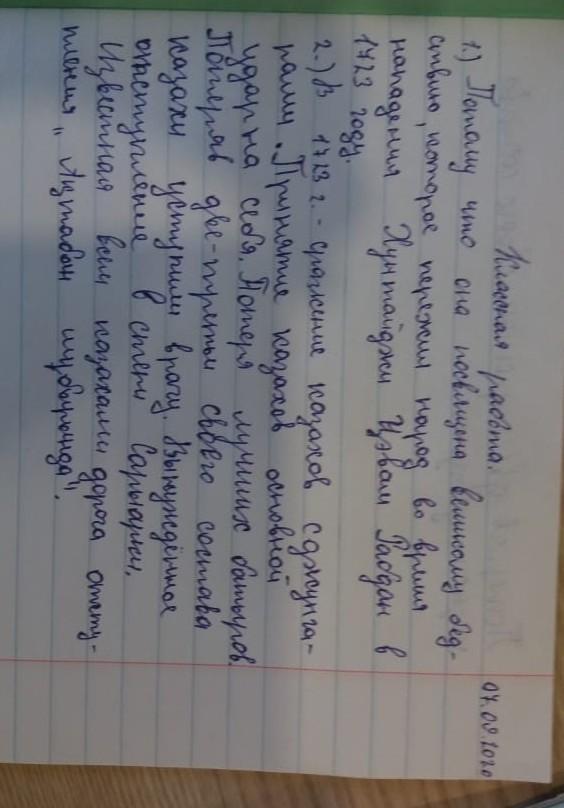 07.09.2020
Классная работа.
1.) Потому что она посвящена великому бед-
ствию, которое пережил народ во время
нападения Хунтайджи Цэван Рабдан в
1723 году.
2.) В 1723 г. - сражение казахов с джунга-
рами. Принятие казахов основной
удар на себя. Потеря лучших батыров.
Потеряв две-третьи своего состава
казахи уступили врагу. Вынуждённое
отступление в степи Сарыарки.
Известная всем казахами дорога отсту-
пления "Ақтабан шұбырынды".